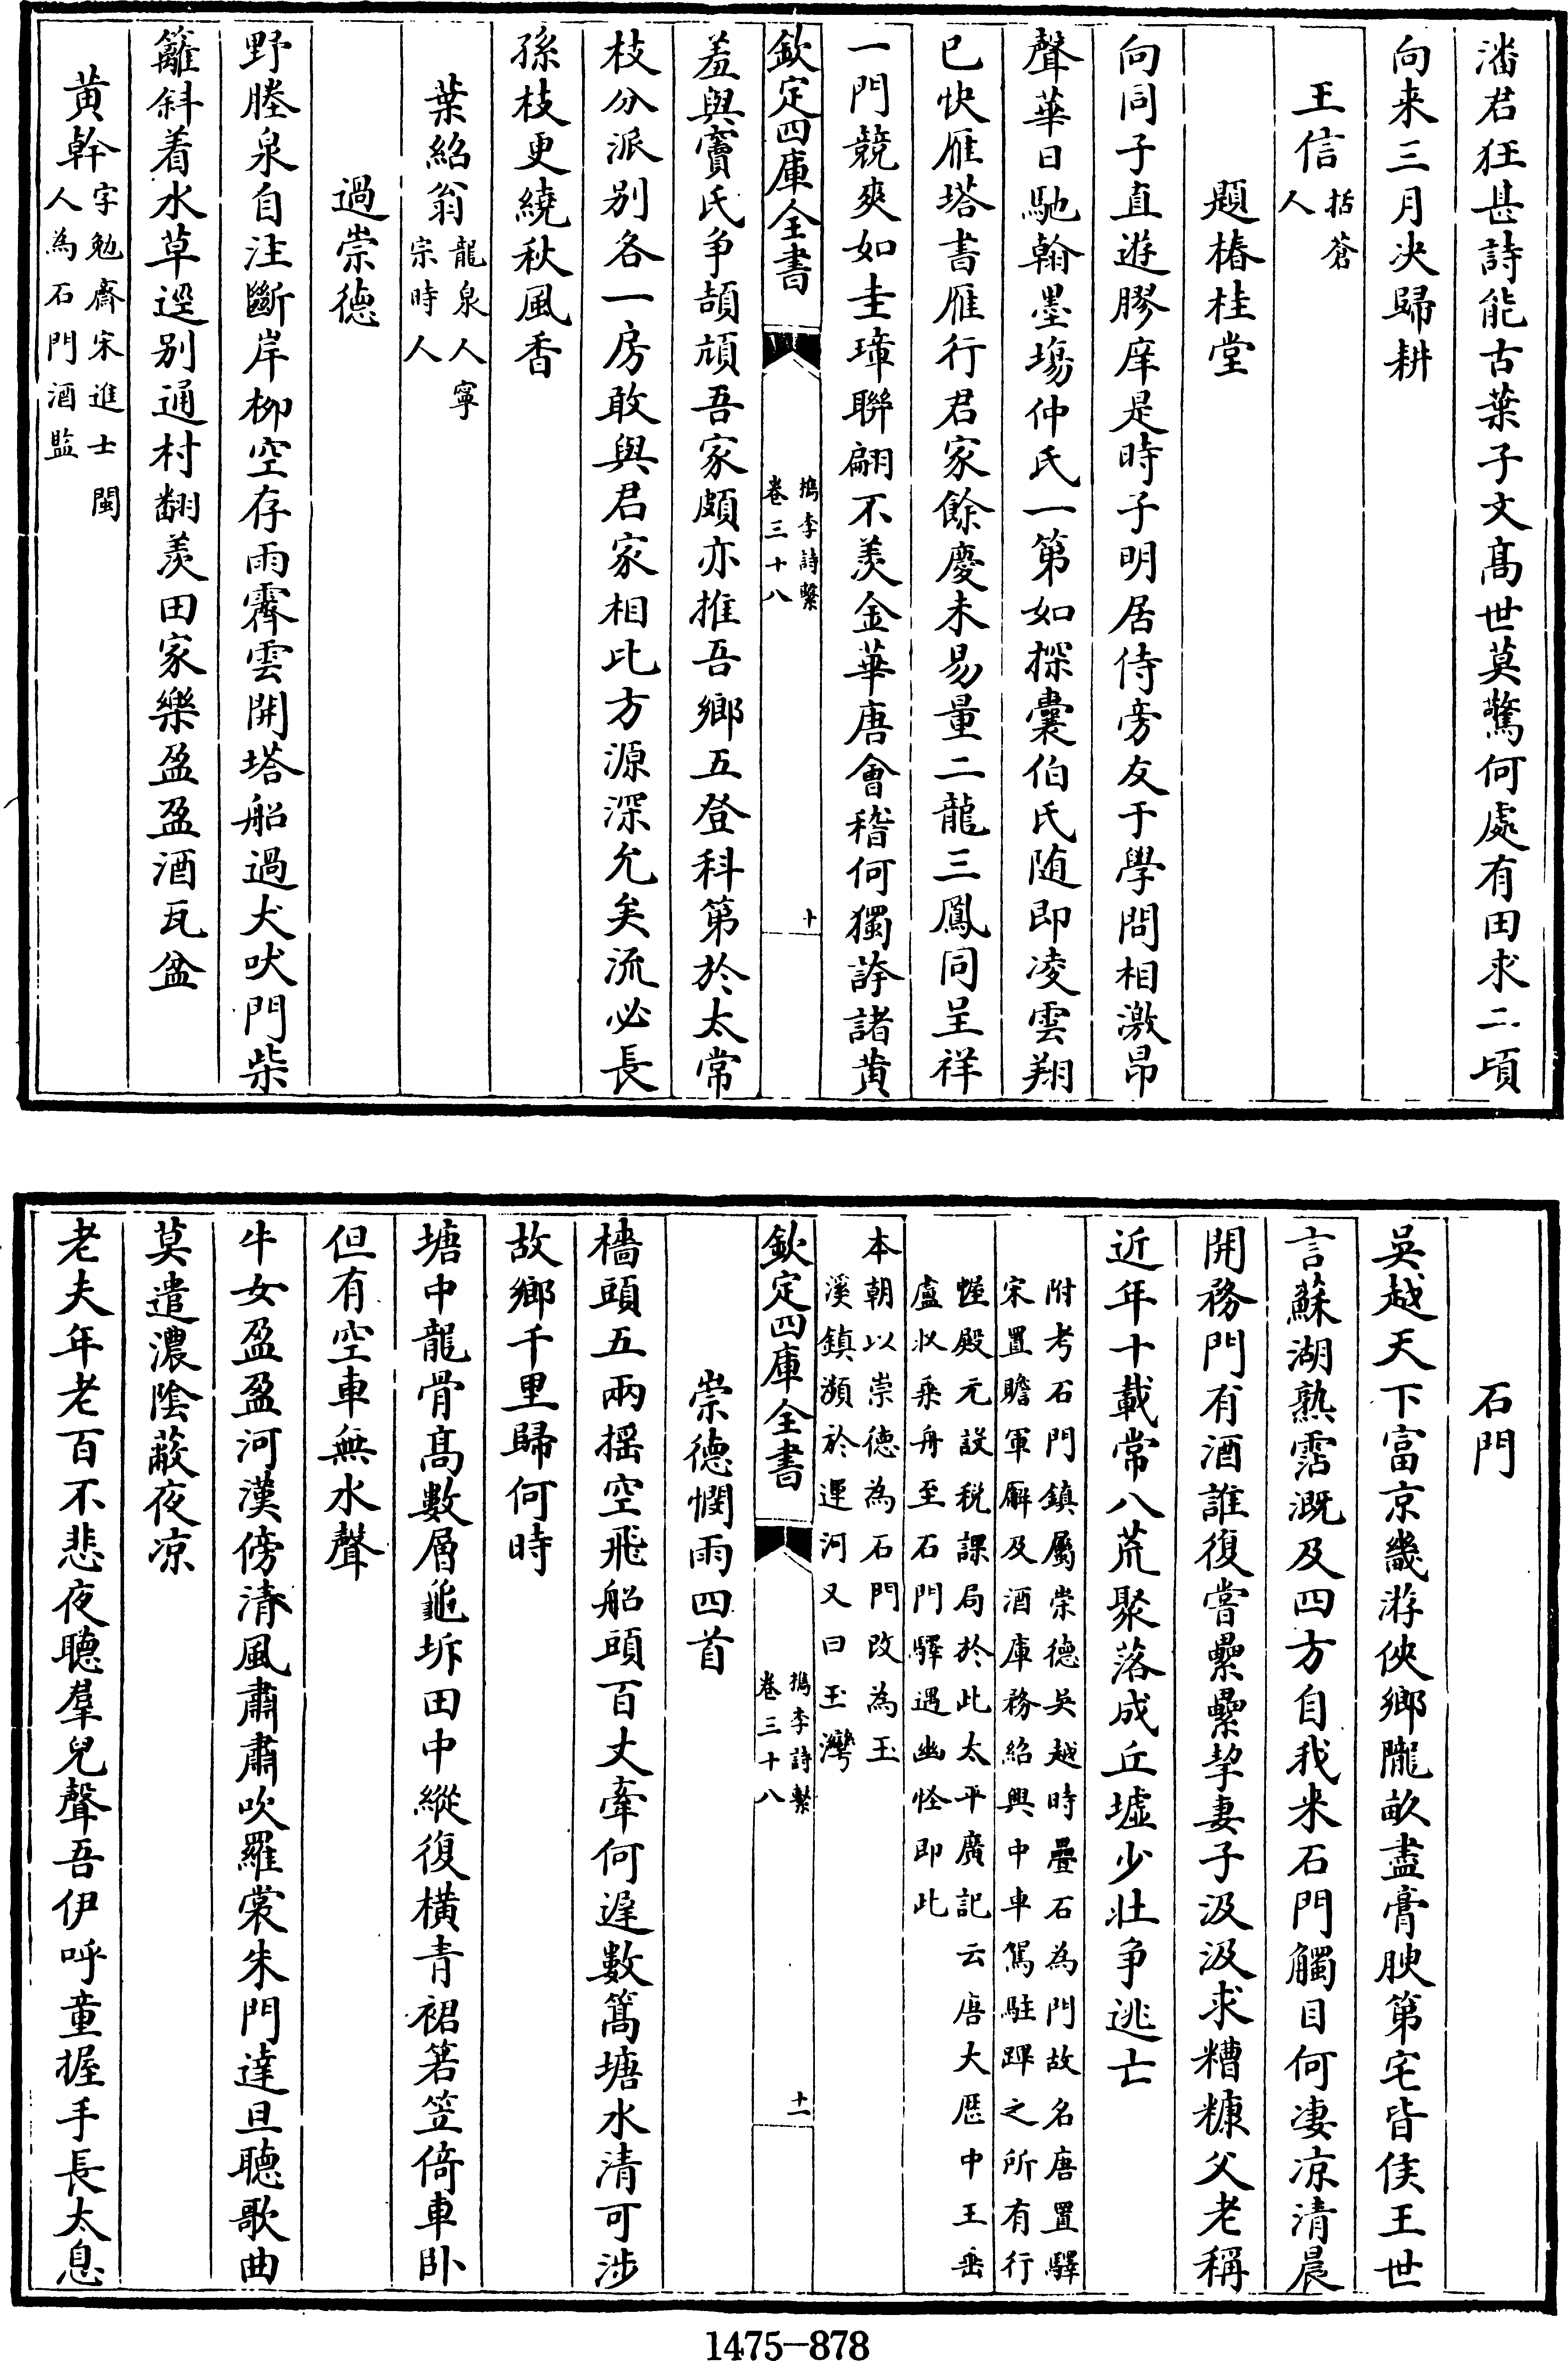 潘君狂甚詩能古葉子文髙世莫驚何處有田求二頃
向来三月决歸耕
王信括蒼
人
題椿桂堂
向同子直遊膠庠是時子明居侍旁友于學問相激昂
聲華日馳翰墨塲仲氏一第如探囊伯氏随即凌雲翔
已快雁塔書雁行君家餘慶未易量二龍三鳳同呈祥
一門競爽如圭璋聯翩不羡金華唐會稽何獨誇諸黄
欽定四庫全書
檇李詩繫
卷三十八
十
羞與竇氏争頡頏吾家頗亦推吾鄉五登科第於太常
枝分派别各一房敢與君家相比方源深允矣流必長
孫枝更繞秋風香
葉紹翁龍泉人寧
宗時人
過崇德
野塍泉自注斷岸柳空存雨霽雲開塔船過犬吠門柴
籬斜着水草逕别通村翻羡田家樂盈盈酒瓦盆
黄幹字勉齋宋進士閩
人為石門酒監
石門
吳越天下富京畿游俠鄉隴畝盡膏腴第宅皆侯王世
言蘇湖熟霑溉及四方自我来石門觸目何凄凉清晨
開務門有酒誰復嘗纍纍挈妻子汲汲求糟糠父老稱
近年十載常八荒聚落成丘墟少壯争逃亡
附考石門鎮屬崇德吳越時疊石為門故名唐置驛
宋置贍軍廨及酒庫務紹興中車駕駐蹕之所有行
幄殿元設稅課局於此太平廣記云唐大厯中王垂
盧收乘舟至石門驛遇幽怪即此
本朝以崇德為石門改為玉
溪鎮瀕於運河又曰玉灣
欽定四庫全書
檇李詩繫
卷三十八
十一
崇德憫雨四首
檣頭五兩摇空飛船頭百丈牽何遲數篙塘水清可涉
故鄉千里歸何時
塘中龍骨髙數層龜坼田中縱復横青裙箬笠倚車卧
但有空車無水聲
牛女盈盈河漢傍清風肅肅吹羅裳朱門達旦聽歌曲
莫遣濃陰蔽夜凉
老夫年老百不悲夜聽羣兒聲吾伊呼童握手長太息
1475—878